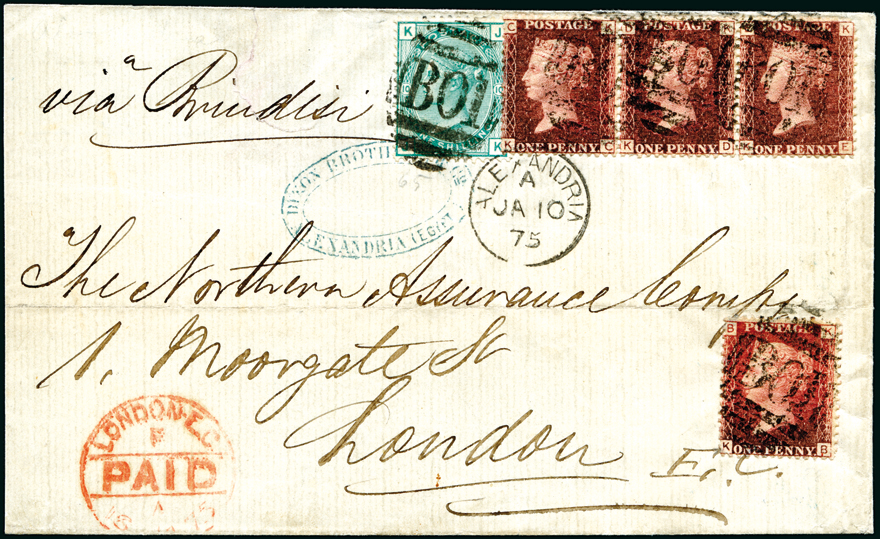 viâ Brindisi
K J
B01
K
C K
POSTAGE
ONE PENNY
K C
D K
POSTAGE
ONE PENNY
K D
E K
POSTAGE
ONE PENNY
K E
DIXON BROTHERS
ALEXANDRIA (EGIPT
ALEXANDRIA
A
JA 10
75
The Northern Assurance Compy
1, Moorgate St
London
E.C.
B K
POSTAGE
B01
ONE PENNY
K B
LONDON-E.C
PAID